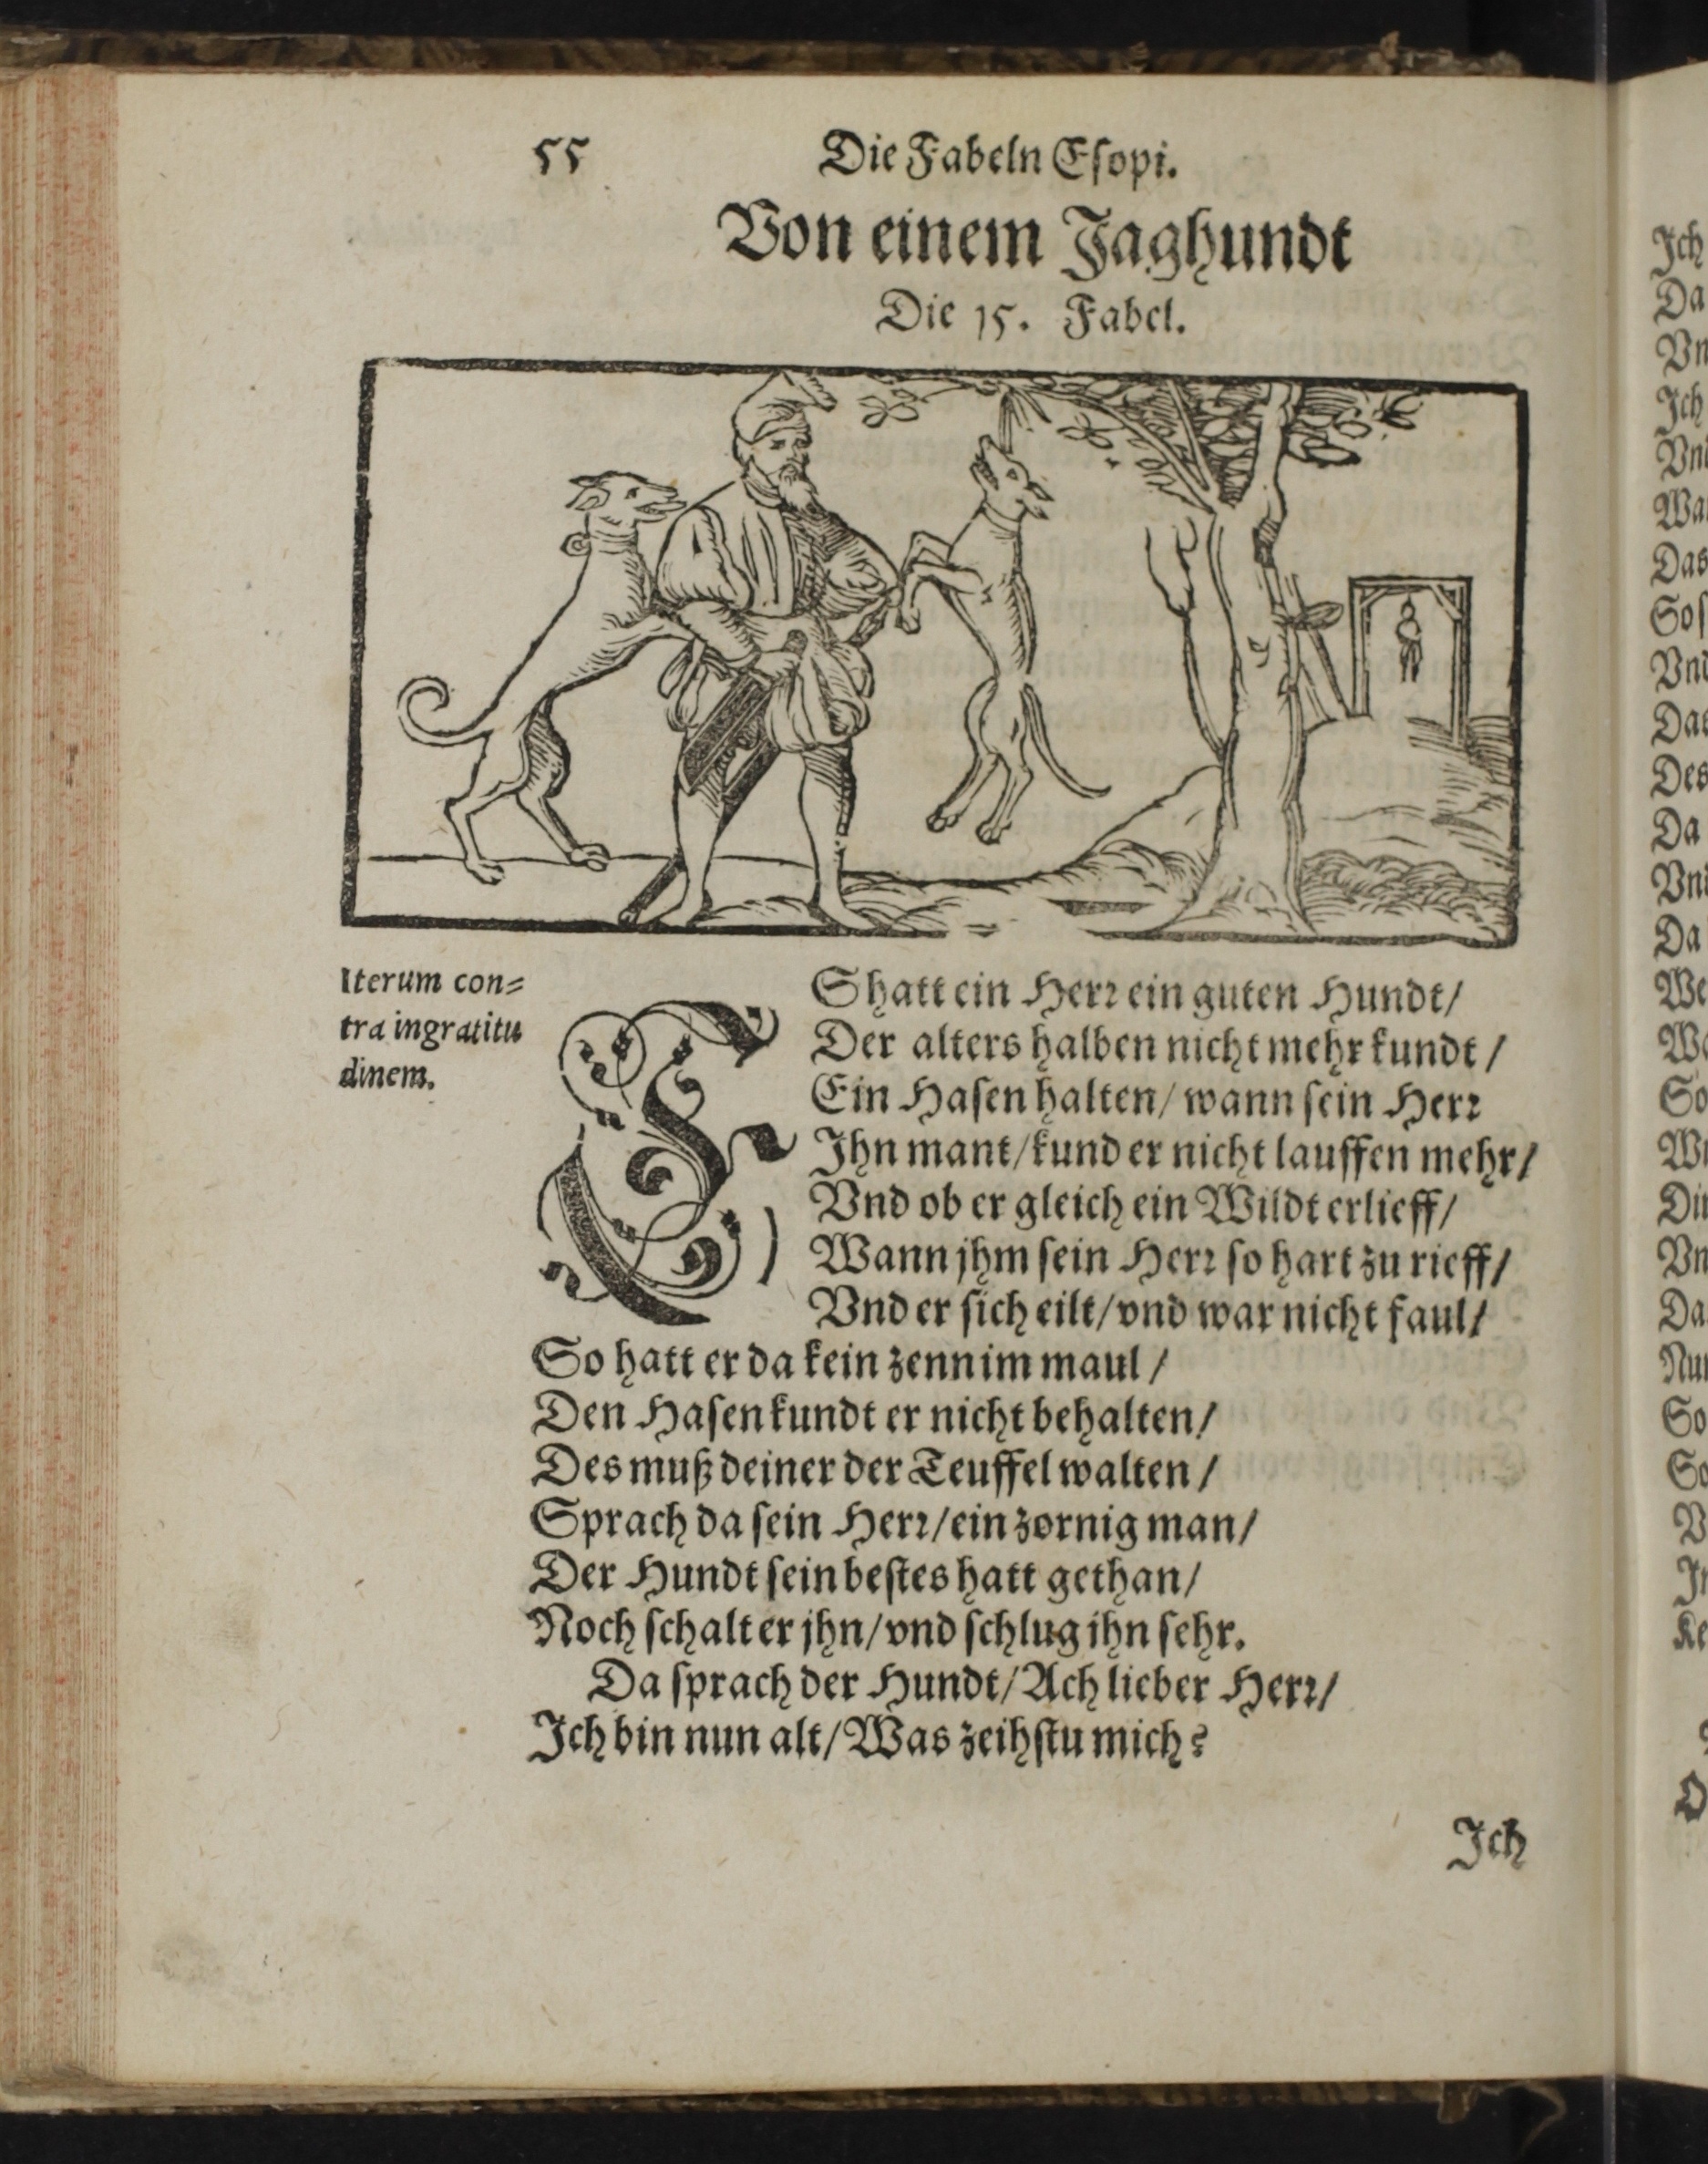 55
Die Fabeln Eſopi.
Von einem Jaghundt
Die 15. Fabel.
Iterum con=
tra ingratitu
dinem.
ES hatt ein Herꝛ ein guten Hundt/
Der alters halben nicht mehr kundt/
Ein Haſen halten/ wann ſein Herꝛ
Ihn mant/ kund er nicht lauffen mehr/
Vnd ob er gleich ein Wildt erlieff/
Wann jhm ſein Herꝛ ſo hart zu rieff/
Vnd er ſich eilt/ vnd war nicht faul/
So hatt er da kein zenn im maul/
Den Haſen kundt er nicht behalten/
Des muß deiner der Teuffel walten/
Sprach da ſein Herꝛ/ ein zornig man/
Der Hundt ſein beſtes hatt gethan/
Noch ſchalt er jhn/ vnd ſchlug jhn ſehr.
Da ſprach der Hundt/ Ach lieber Herꝛ/
Ich bin nun alt/ Was zeihſtu mich?
Ich
Ich
Da
Vn
Ich
Das
Vnd
Das
Des
Da
Da
So
Vn
Da
So
So